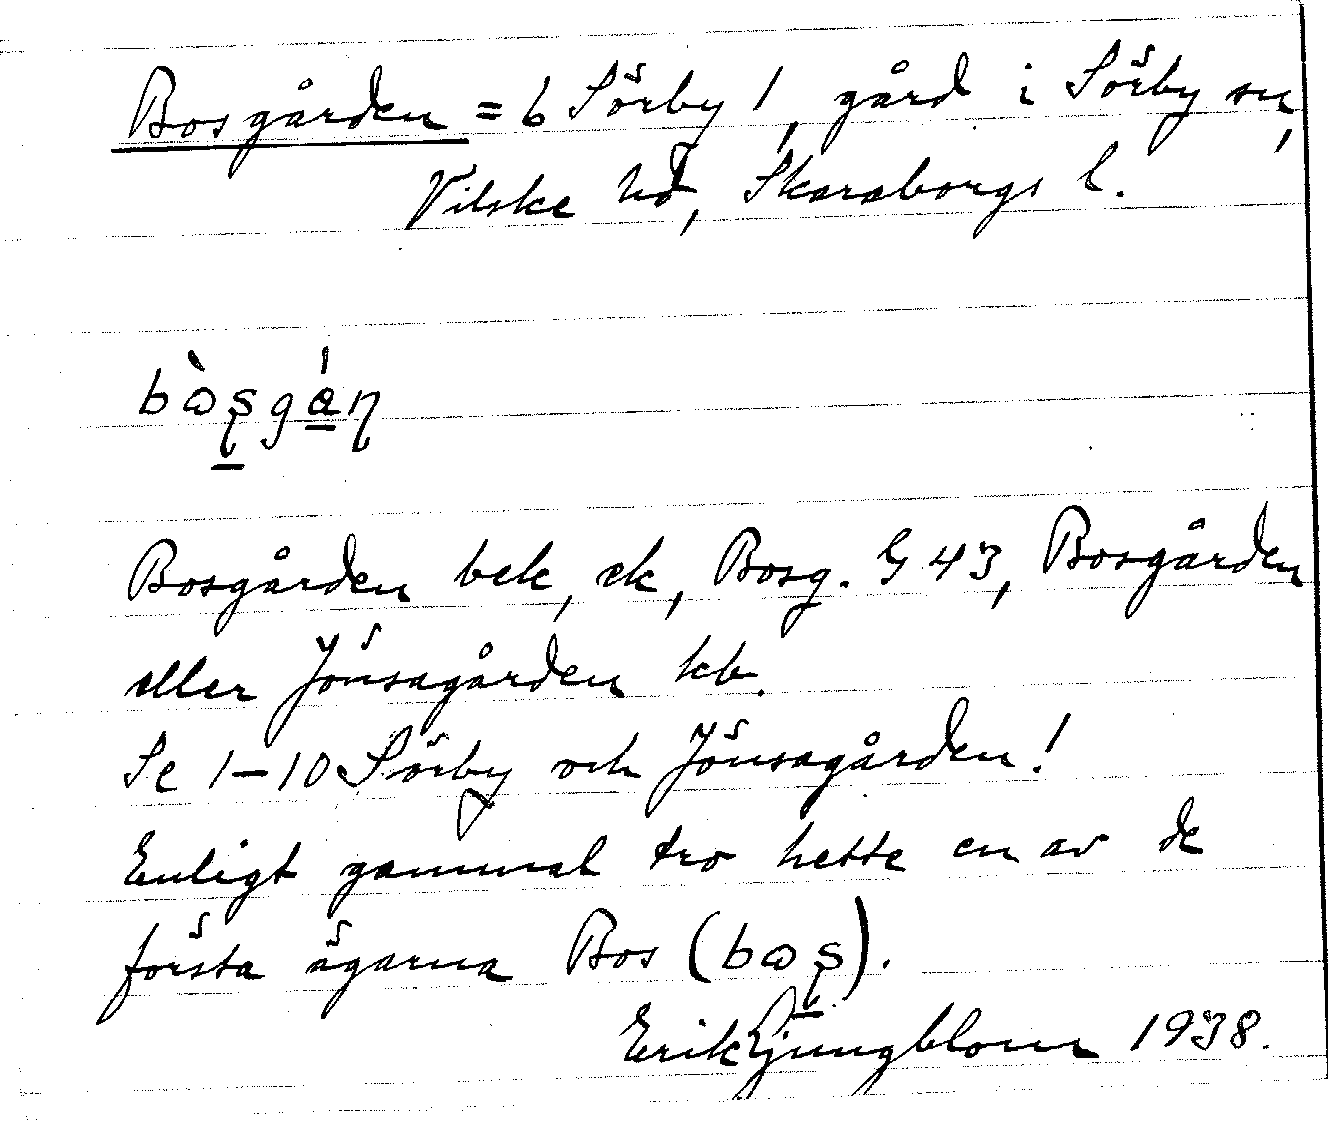 Bosgården = 6 Sörby 1, gård i Sörby sn,
Vilske hd, Skaraborgs l.
bòʂgán
Bosgården bek, ek, Bosg. G 43, Bosgården
eller Jönsagården kb.
Se 1–10 Sörby och Jönsagården!
Enligt gammal tro hette en av de
första ägarna Bos (boʂ).
Erik Ljungblom 1938.